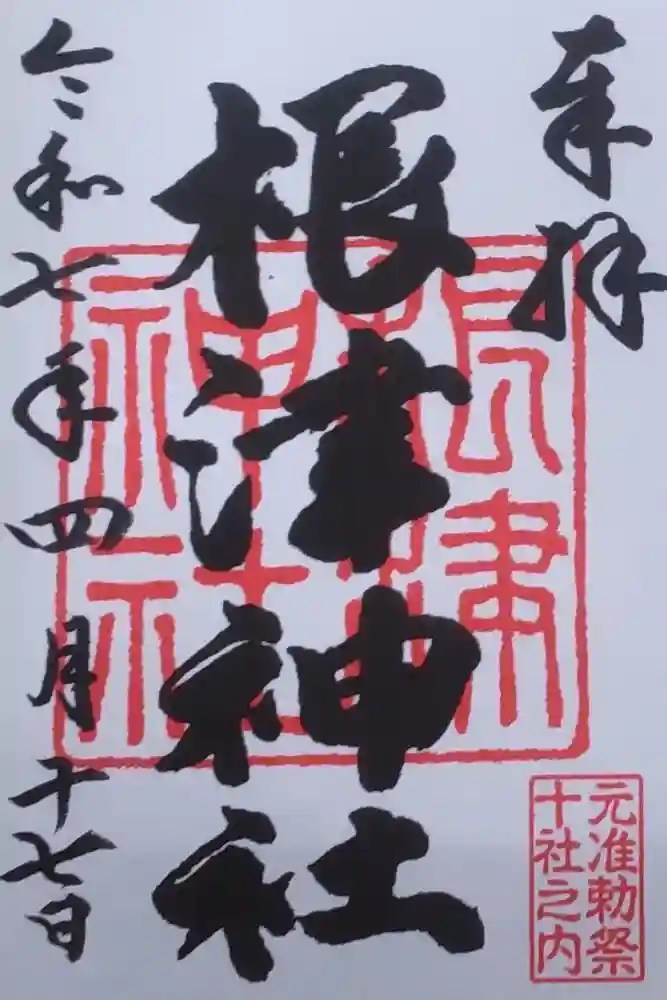 奉拝
根津神社
令和七年四月十七日
根津
神社
元准勅祭
十社之内